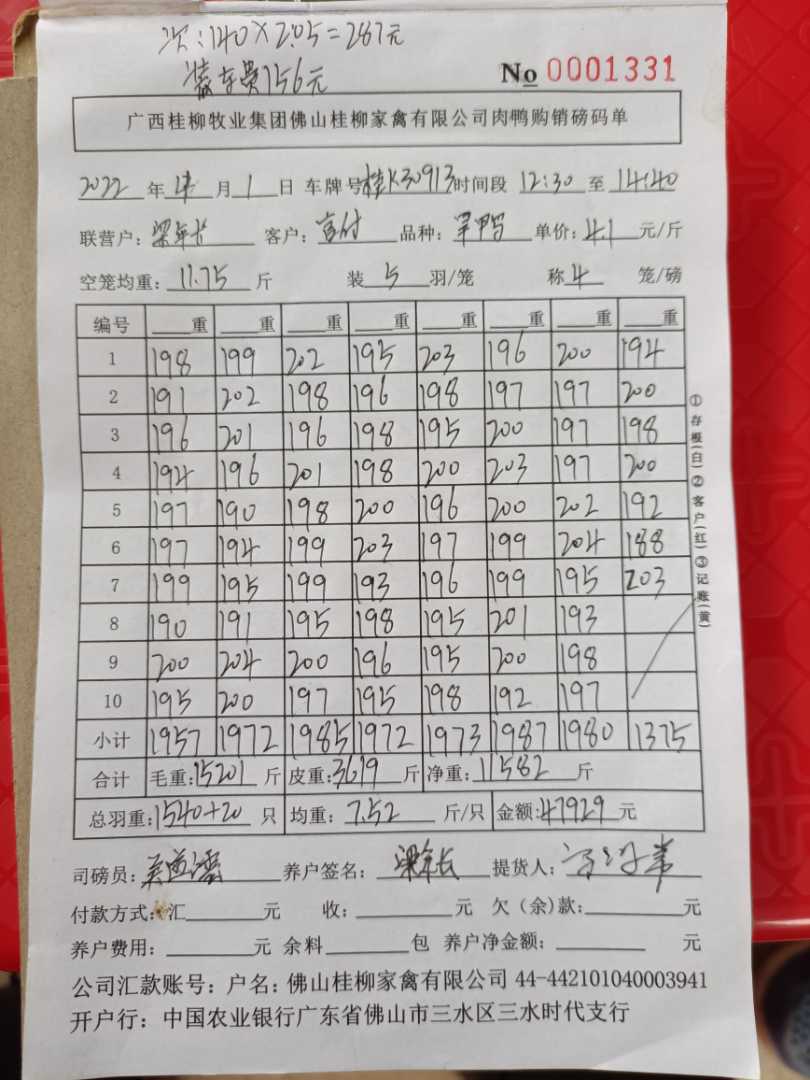 次:140×2.05=287元
装车费156元
No 0001331
广西桂柳牧业集团佛山桂柳家禽有限公司肉鸭购销磅码单
2022年4月1日 车牌号桂K30913时间段 12:30 至 14:40
联营户: 梁年长 客户: 品种: 单价: 4.1 元/斤
空笼均重: 11.75 斤 装 5 羽/笼 称 4 笼/磅
编号 重 重 重 重 重 重 重 重
1 198 199 202 195 203 196 200 194
2 191 202 198 196 198 197 197 200
3 196 201 196 198 195 200 197 198
4 194 196 201 198 200 203 197 200
5 197 190 198 200 196 200 202 192
6 197 194 199 203 197 199 204 188
7 199 195 199 193 196 199 195 203
8 190 191 195 198 195 201 193
9 200 204 200 196 195 200 198
10 195 200 197 195 198 192 197
小计 1957 1972 1985 1972 1973 1987 1980 1375
合计 毛重:15201 斤 皮重:3619 斤 净重:11582 斤
总羽重:1540+20 只 均重: 7.52 斤/只 金额:47929 元
司磅员: 养户签名: 梁年长 提货人:
付款方式: 汇 元 收: 元 欠(余)款: 元
养户费用: 元 余料 包 养户净金额: 元
公司汇款账号: 户名: 佛山桂柳家禽有限公司 44-442101040003941
开户行: 中国农业银行广东省佛山市三水区三水时代支行
①存根(白)②客户(红)③记账(黄)